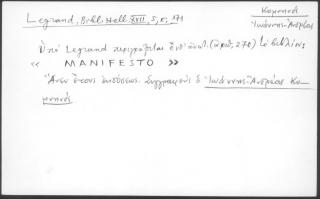 Legrand, Bibl. Hell. XVII, 5, σ. 171
Κομνηνός
Ἰωάννης-Ἀνδρέας
Ὑπό Legrand περιγράφεται ἐνθ' ἀνωτ. (ἀριθ. 270) τό βιβλίον
« MANIFESTO »
Ἄνευ ἔτους ἐκδόσεως. Συγγραφεύς ὁ Ἰωάννης-Ἀνδρέας Κο-
μνηνός